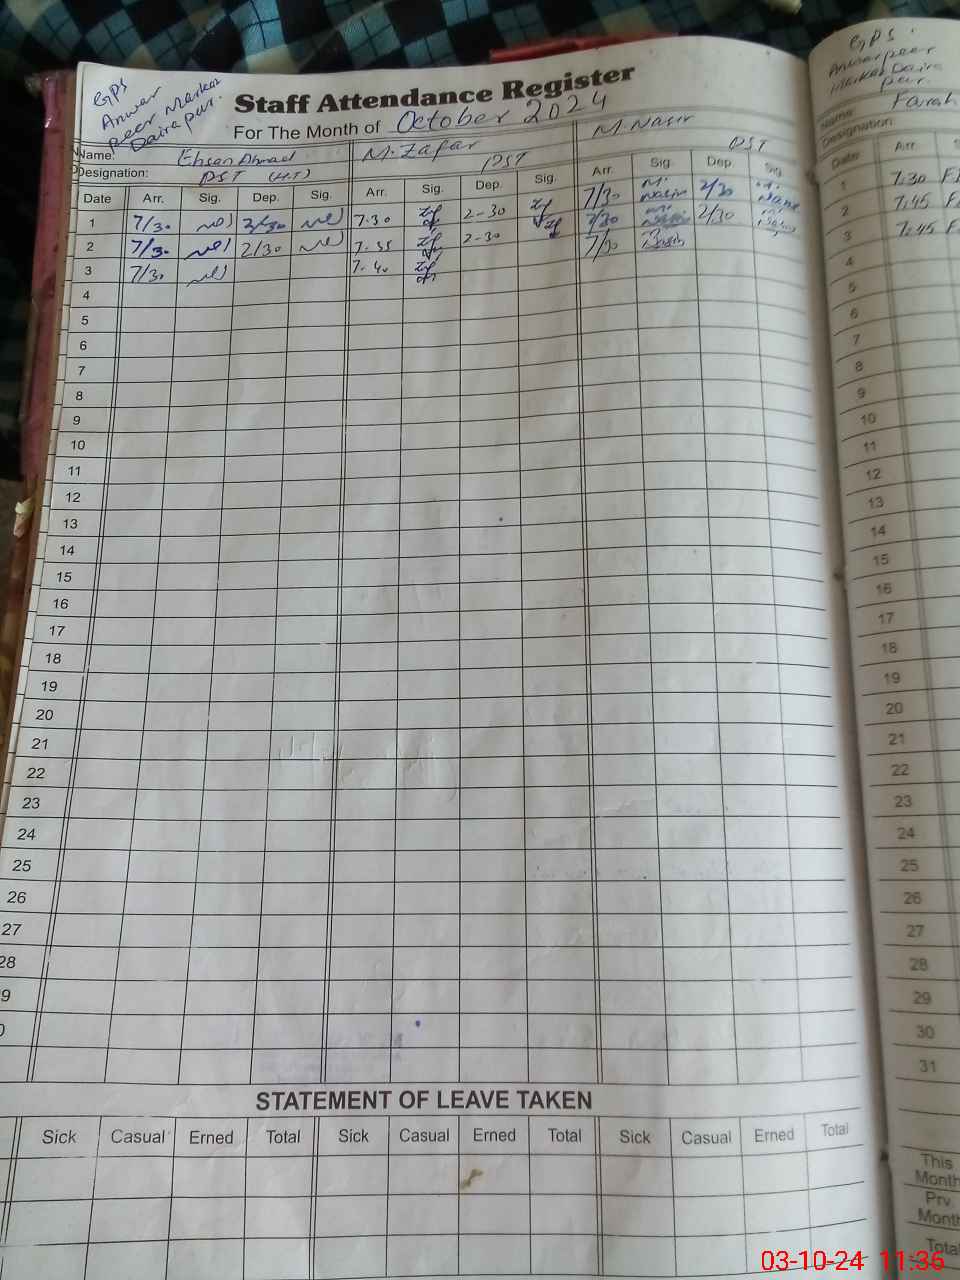 GPS
Anwar
peer Markaz
Daira pur.
Staff Attendance Register
For The Month of October 2024
Name: Ehsan Ahmad M. Zafar M. Nasir
Designation: PST (H.T) PST PST
Date Arr. Sig. Dep. Sig. Arr. Sig. Dep. Sig. Arr. Sig. Dep. Sig.
1 7/30 2/30 7.30 2-30 7/30 M. Nasir 2/30
2 7/30 2/30 7.35 2-30 7/30 2/30
3 7/30 7.40 7/30
4
5
6
7
8
9
10
11
12
13
14
15
16
17
18
19
20
21
22
23
24
25
26
27
28
9
0
STATEMENT OF LEAVE TAKEN
Sick Casual Erned Total Sick Casual Erned Total Sick Casual Erned Total
GPS.
Anwar peer
Markaz Daira
pur.
Name: Farah
Designation:
Date Arr. S
1 7.30
2 7.45
3 7.45
4
5
6
7
8
9
10
11
12
13
14
15
16
17
18
19
20
21
22
23
24
25
26
27
28
29
30
31
This
Month
Prv.
Month
Total
03-10-24 11:36